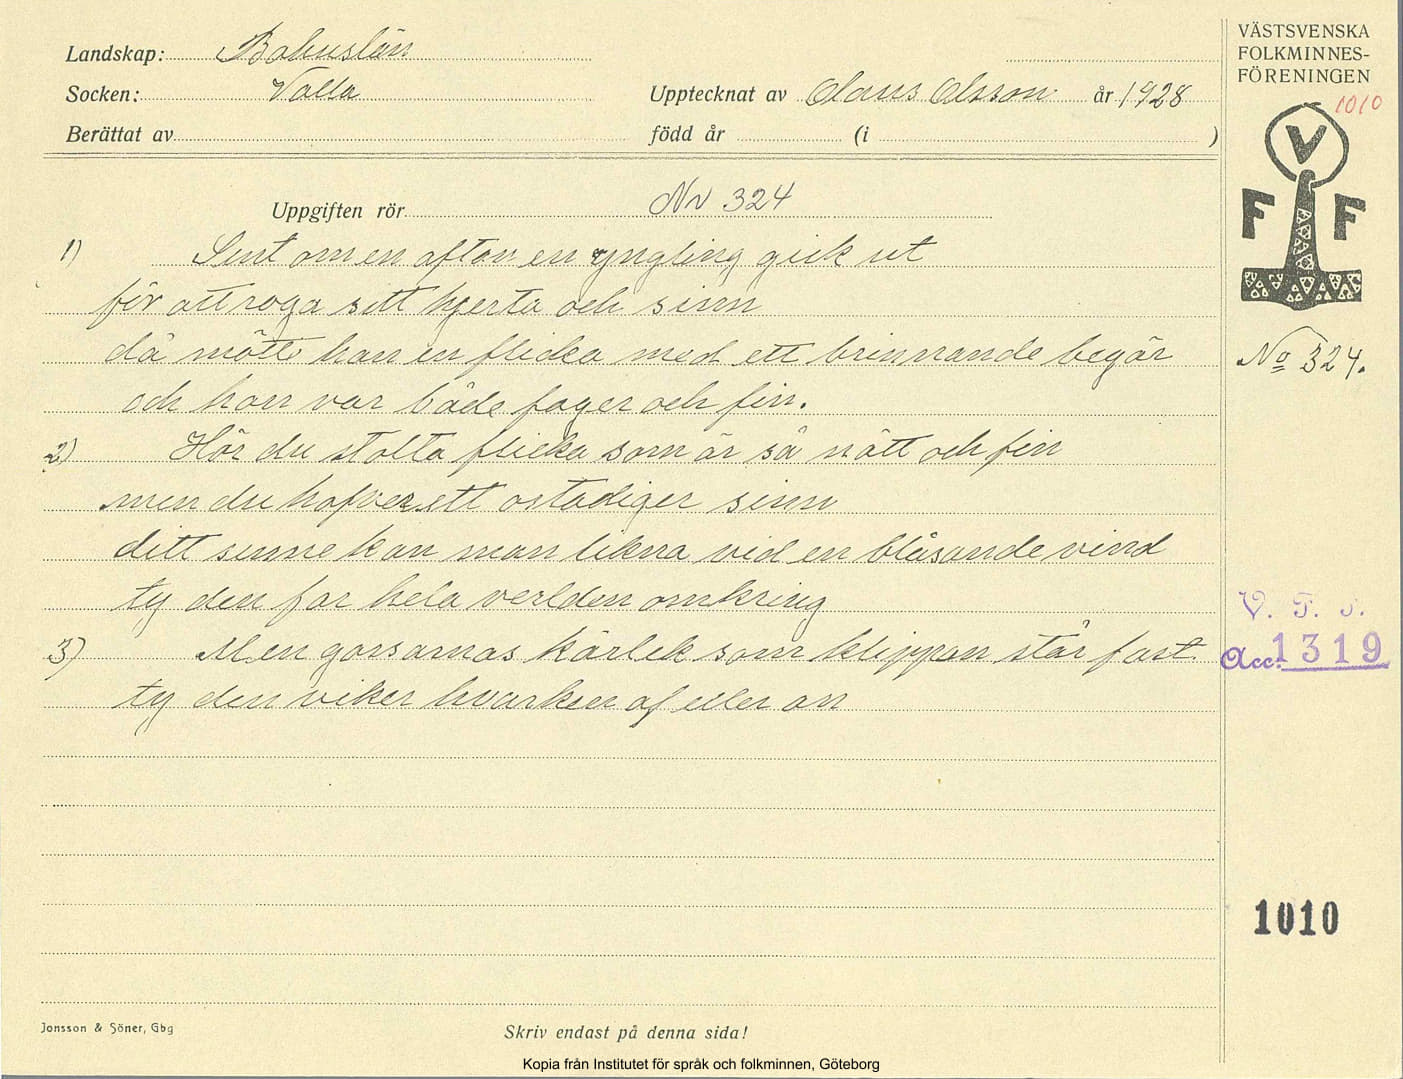 Landskap: Bohuslän
Socken: Valla
Upptecknat av Olaus Olsson år 1928
Berättat av
född år (i )
VÄSTSVENSKA
FOLKMINNES-
FÖRENINGEN
1010
V
F F
Uppgiften rör Nr 324
1) Sent om en afton en yngling gick ut
för att roga sitt hjerta och sinn
då mötte han en flicka med ett brinnande begär
och hon var både fager och fin.
2) Hör du stolta flicka som är så nätt och fin
men du hafver ett ostadiger sinn
ditt sinne kan man likna vid en blåsande vind
ty den far hela verlden omkring
3) Men gossarnas kärlek som klippan står fast
ty den viker hvarken af eller an
No 324.
V. F. F.
Acc. 1319
1010
Jonsson & Söner, Gbg
Skriv endast på denna sida!
Kopia från Institutet för språk och folkminnen, Göteborg